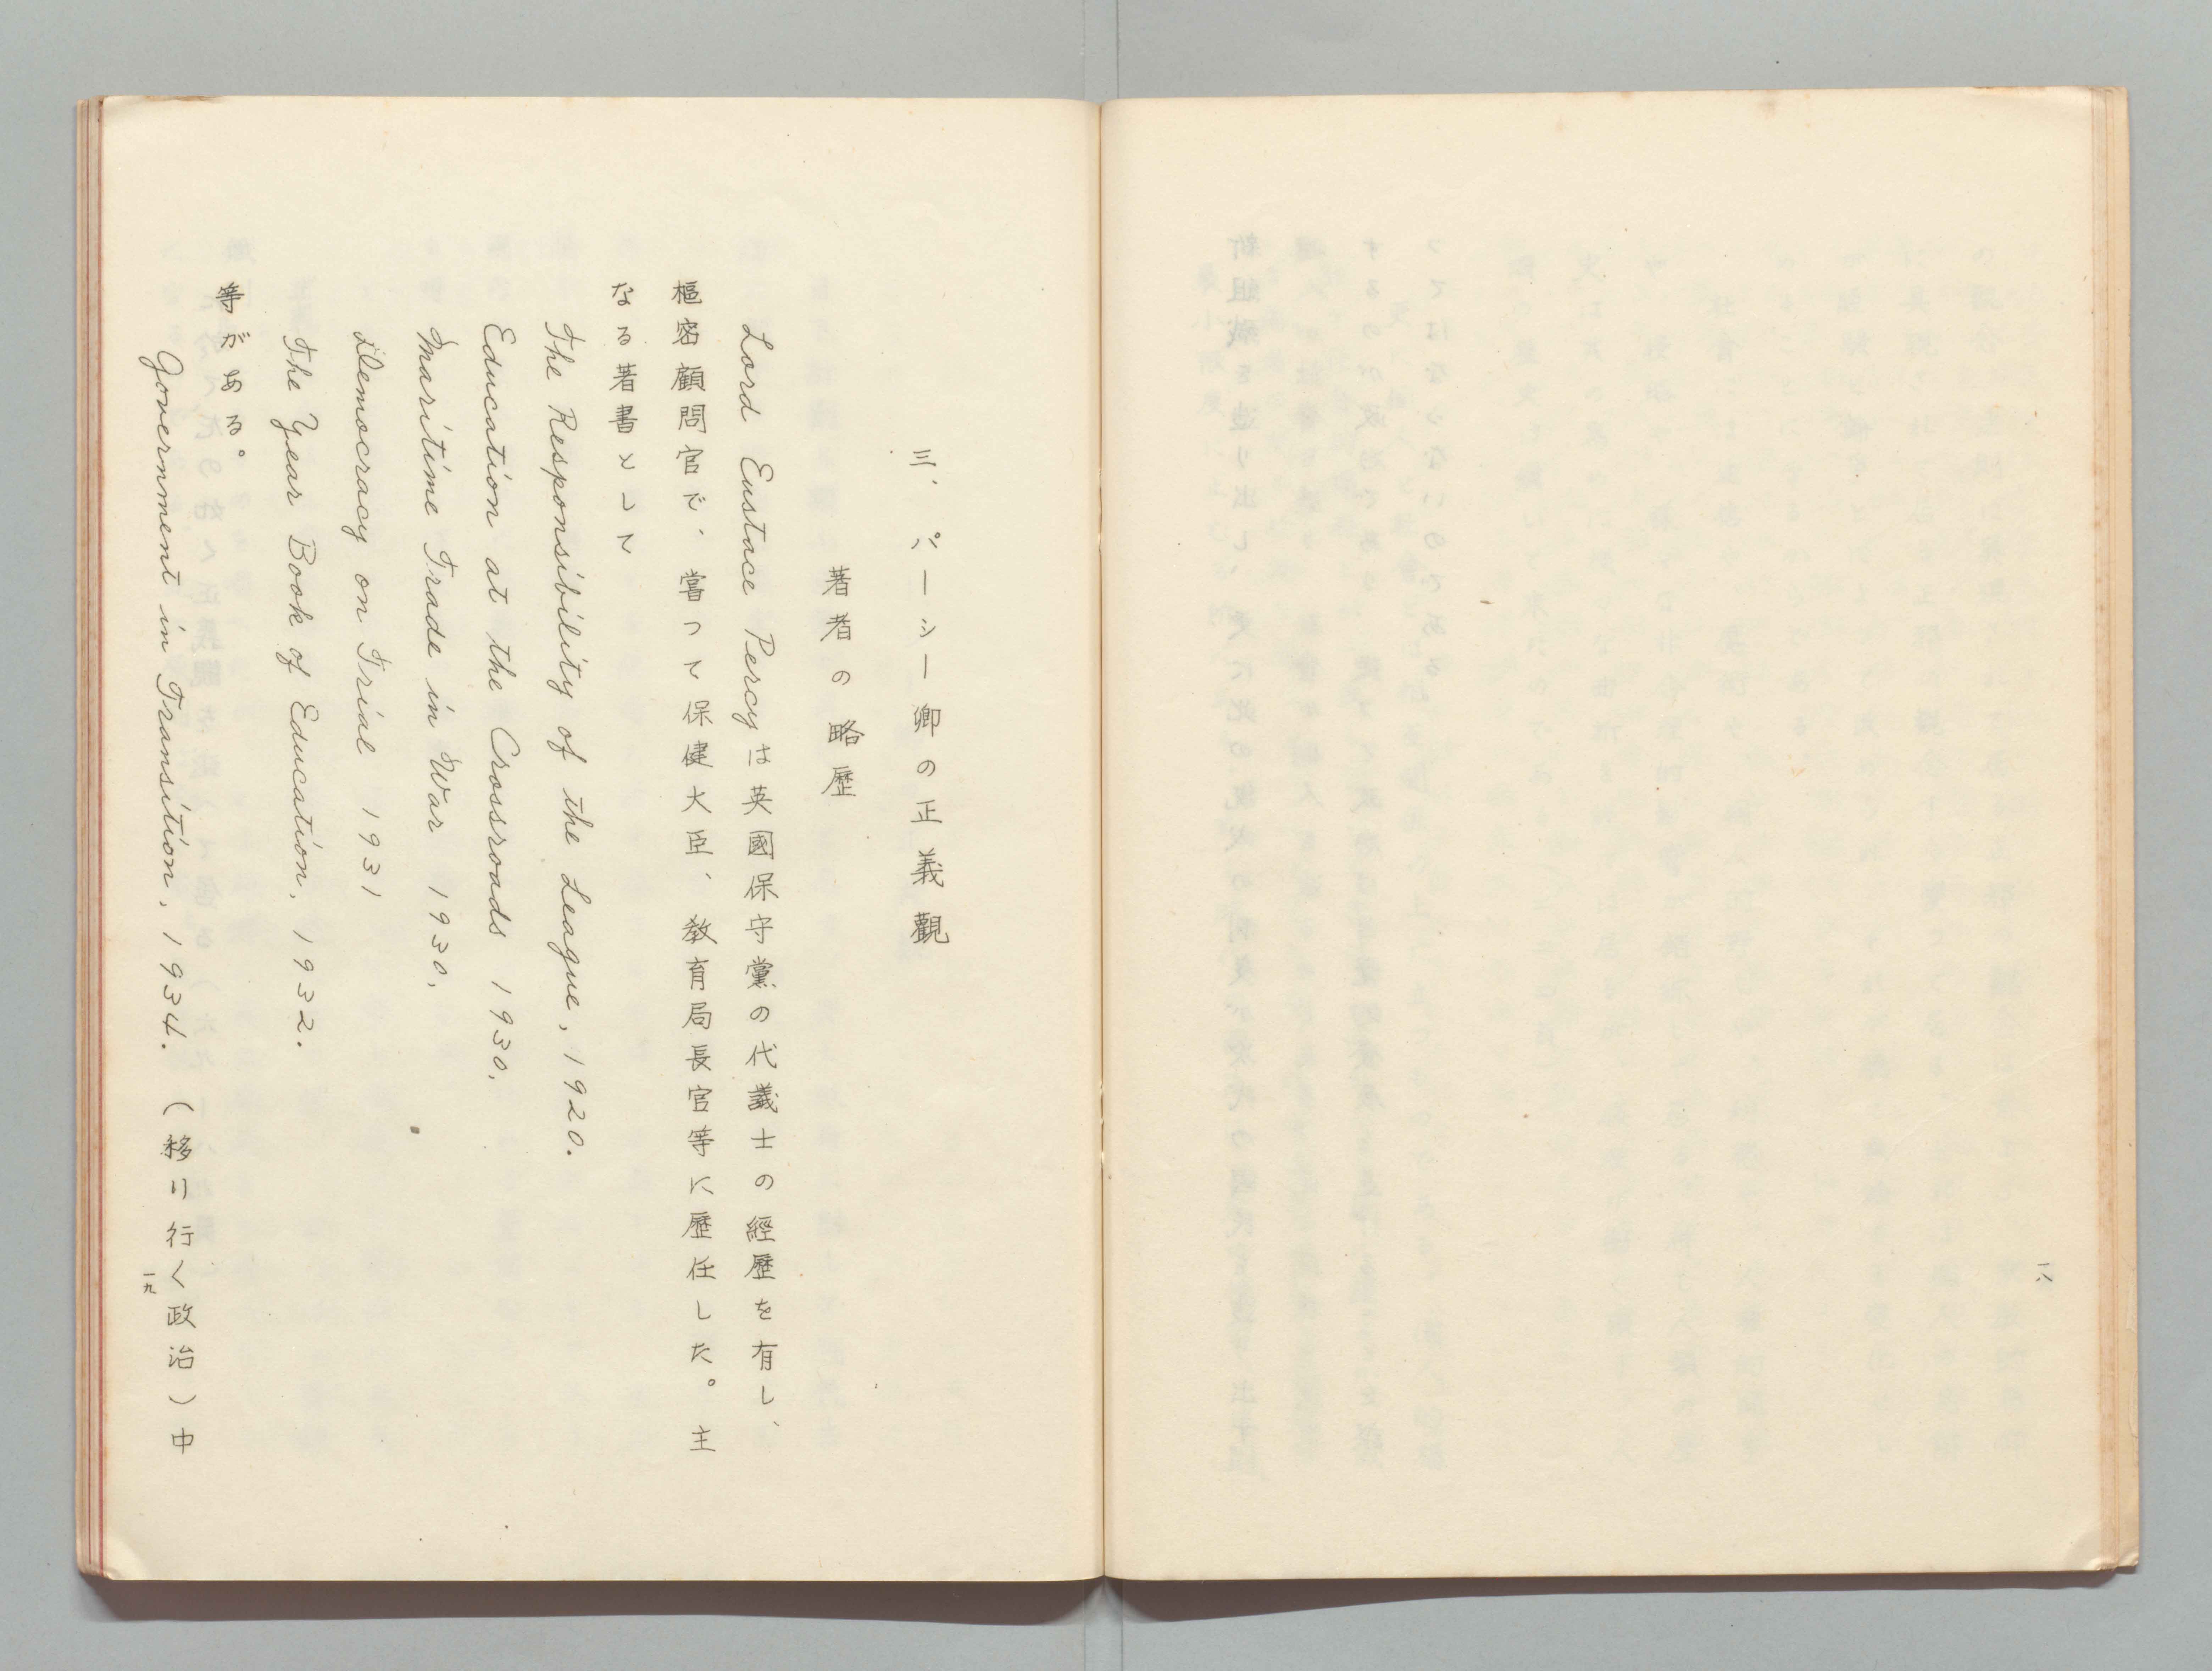 一八
三、パーシー卿の正義觀
著者の略歴
Lord Eustace Percyは英國保守黨の代議士の經歷を有し、
樞密顧問官で、嘗つて保健大臣、教育局長官等に歷任した。主
なる著書として
The Responsibility of the League, 1920.
Education at the Crossroads 1930.
Maritime Trade in War 1930.
Democracy on Trial 1931
The Year Book of Education, 1932.
等がある。
Government in Transition, 1934. (移り行く政治)中
一九